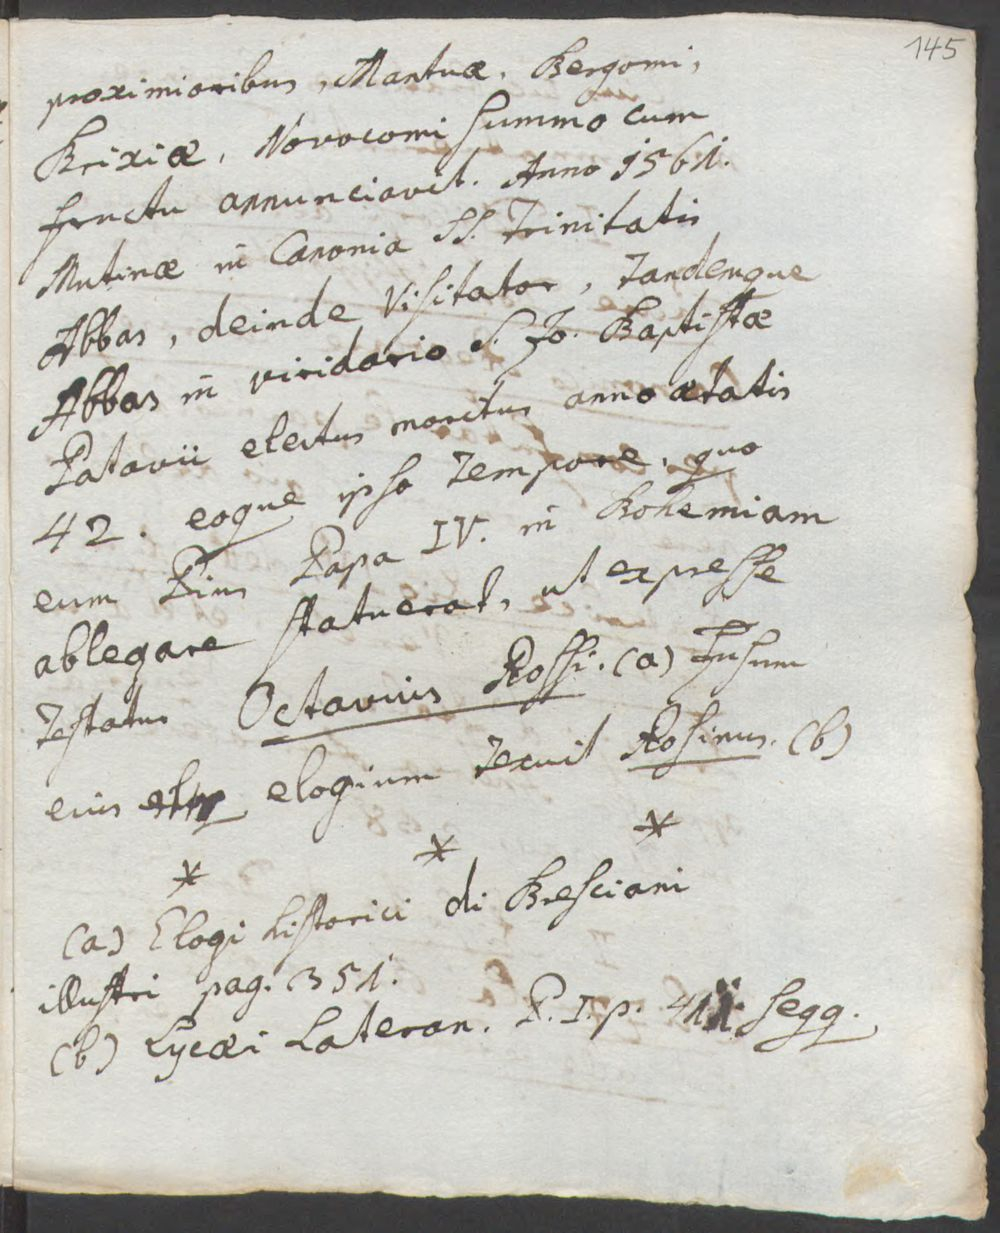 145
proximioribus, Mantuæ, Bergomi,
Brixiæ, Novocomi summo cum
fructu annunciavit. Anno 1561.
Mutinæ in Canonia SS. Trinitatis
Abbas, deinde Visitator, tandemque
Abbas in viridario S. Jo. Baptistæ
Patavii electus moritur anno ætatis
42. eoque ipso tempore, quo
eum Pius Papa IV. in Bohemiam
ablegare statuerat, ut expresse
testatur Octavius Rossi. (a) Fusum
eius elogium texuit Rosinus. (b)
* * *
(a) Elogi historici di Bresciani
illustri pag. 351.
(b) Lycæi Lateran. P. I. p. seqq.